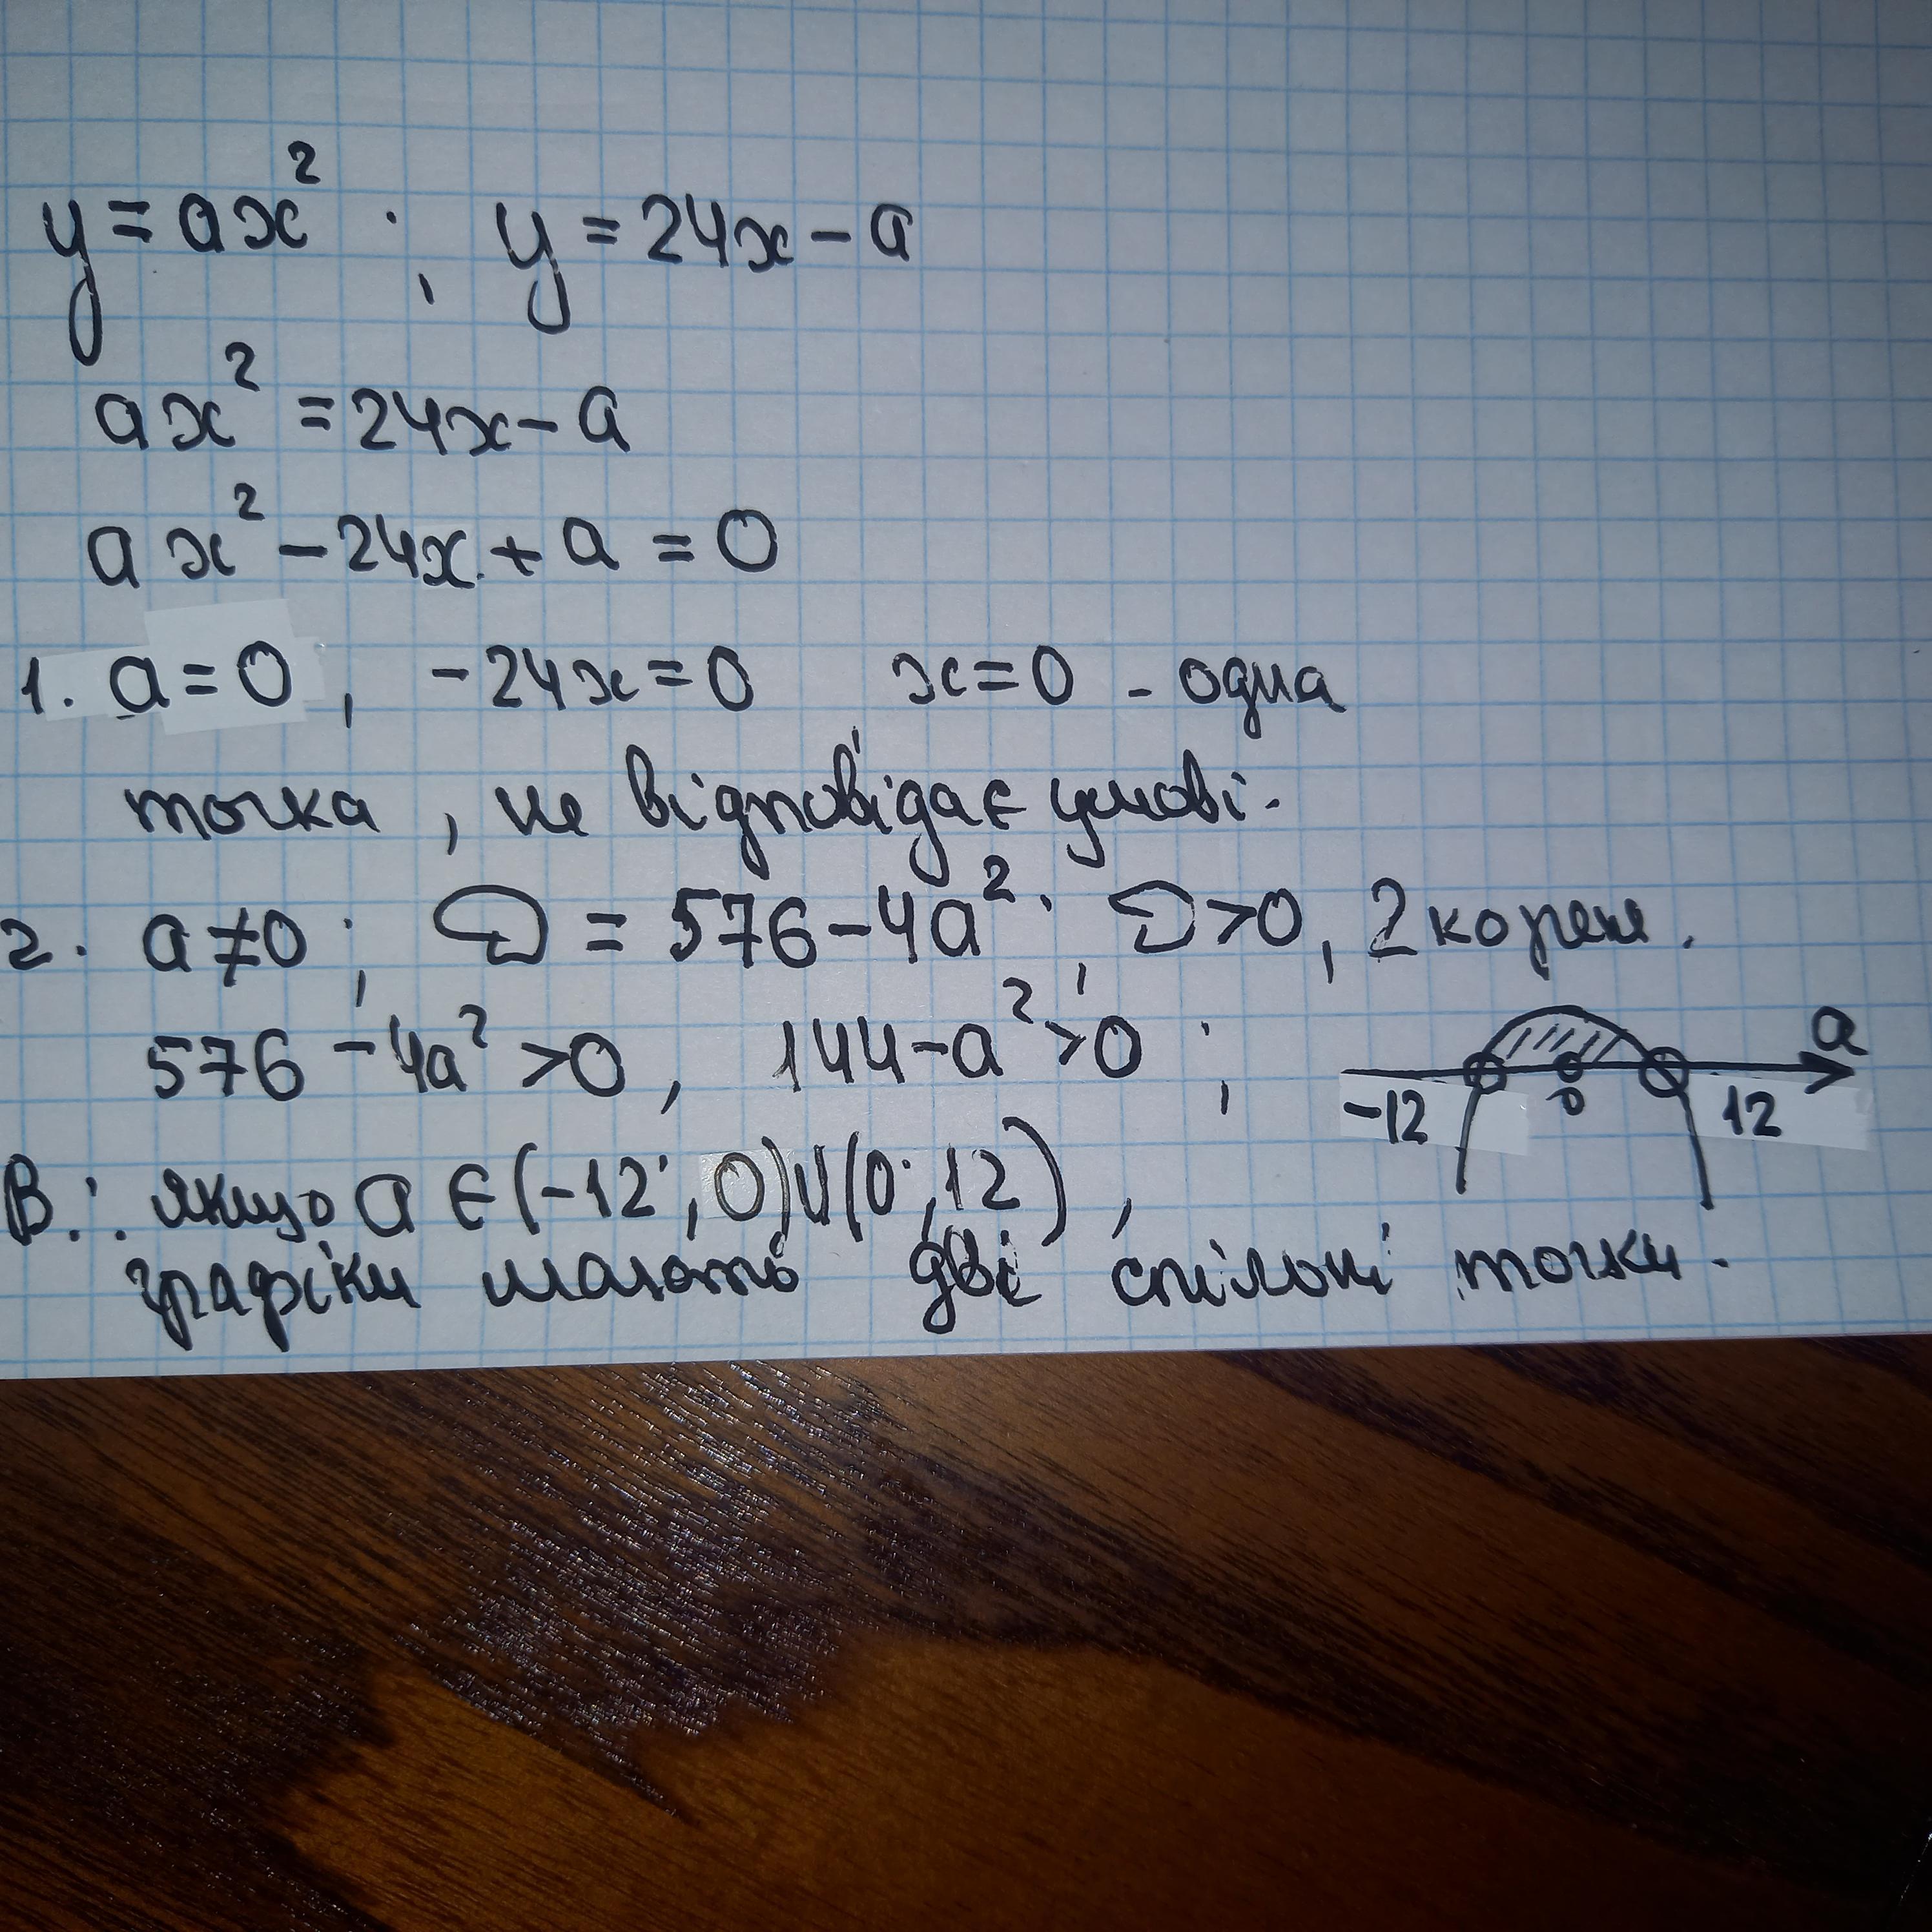 y = ax² ; y = 24x - a
ax² = 24x - a
ax² - 24x + a = 0
1. a = 0, -24x = 0 x = 0 - одна
точка, не відповідає умові.
2. a ≠ 0; D = 576 - 4a²; D > 0, 2 корені.
576 - 4a² > 0, 144 - a² > 0;
a
-12 0 12
В.: якщо a ∈ (-12; 0) ∪ (0; 12),
графіки мають дві спільні точки.